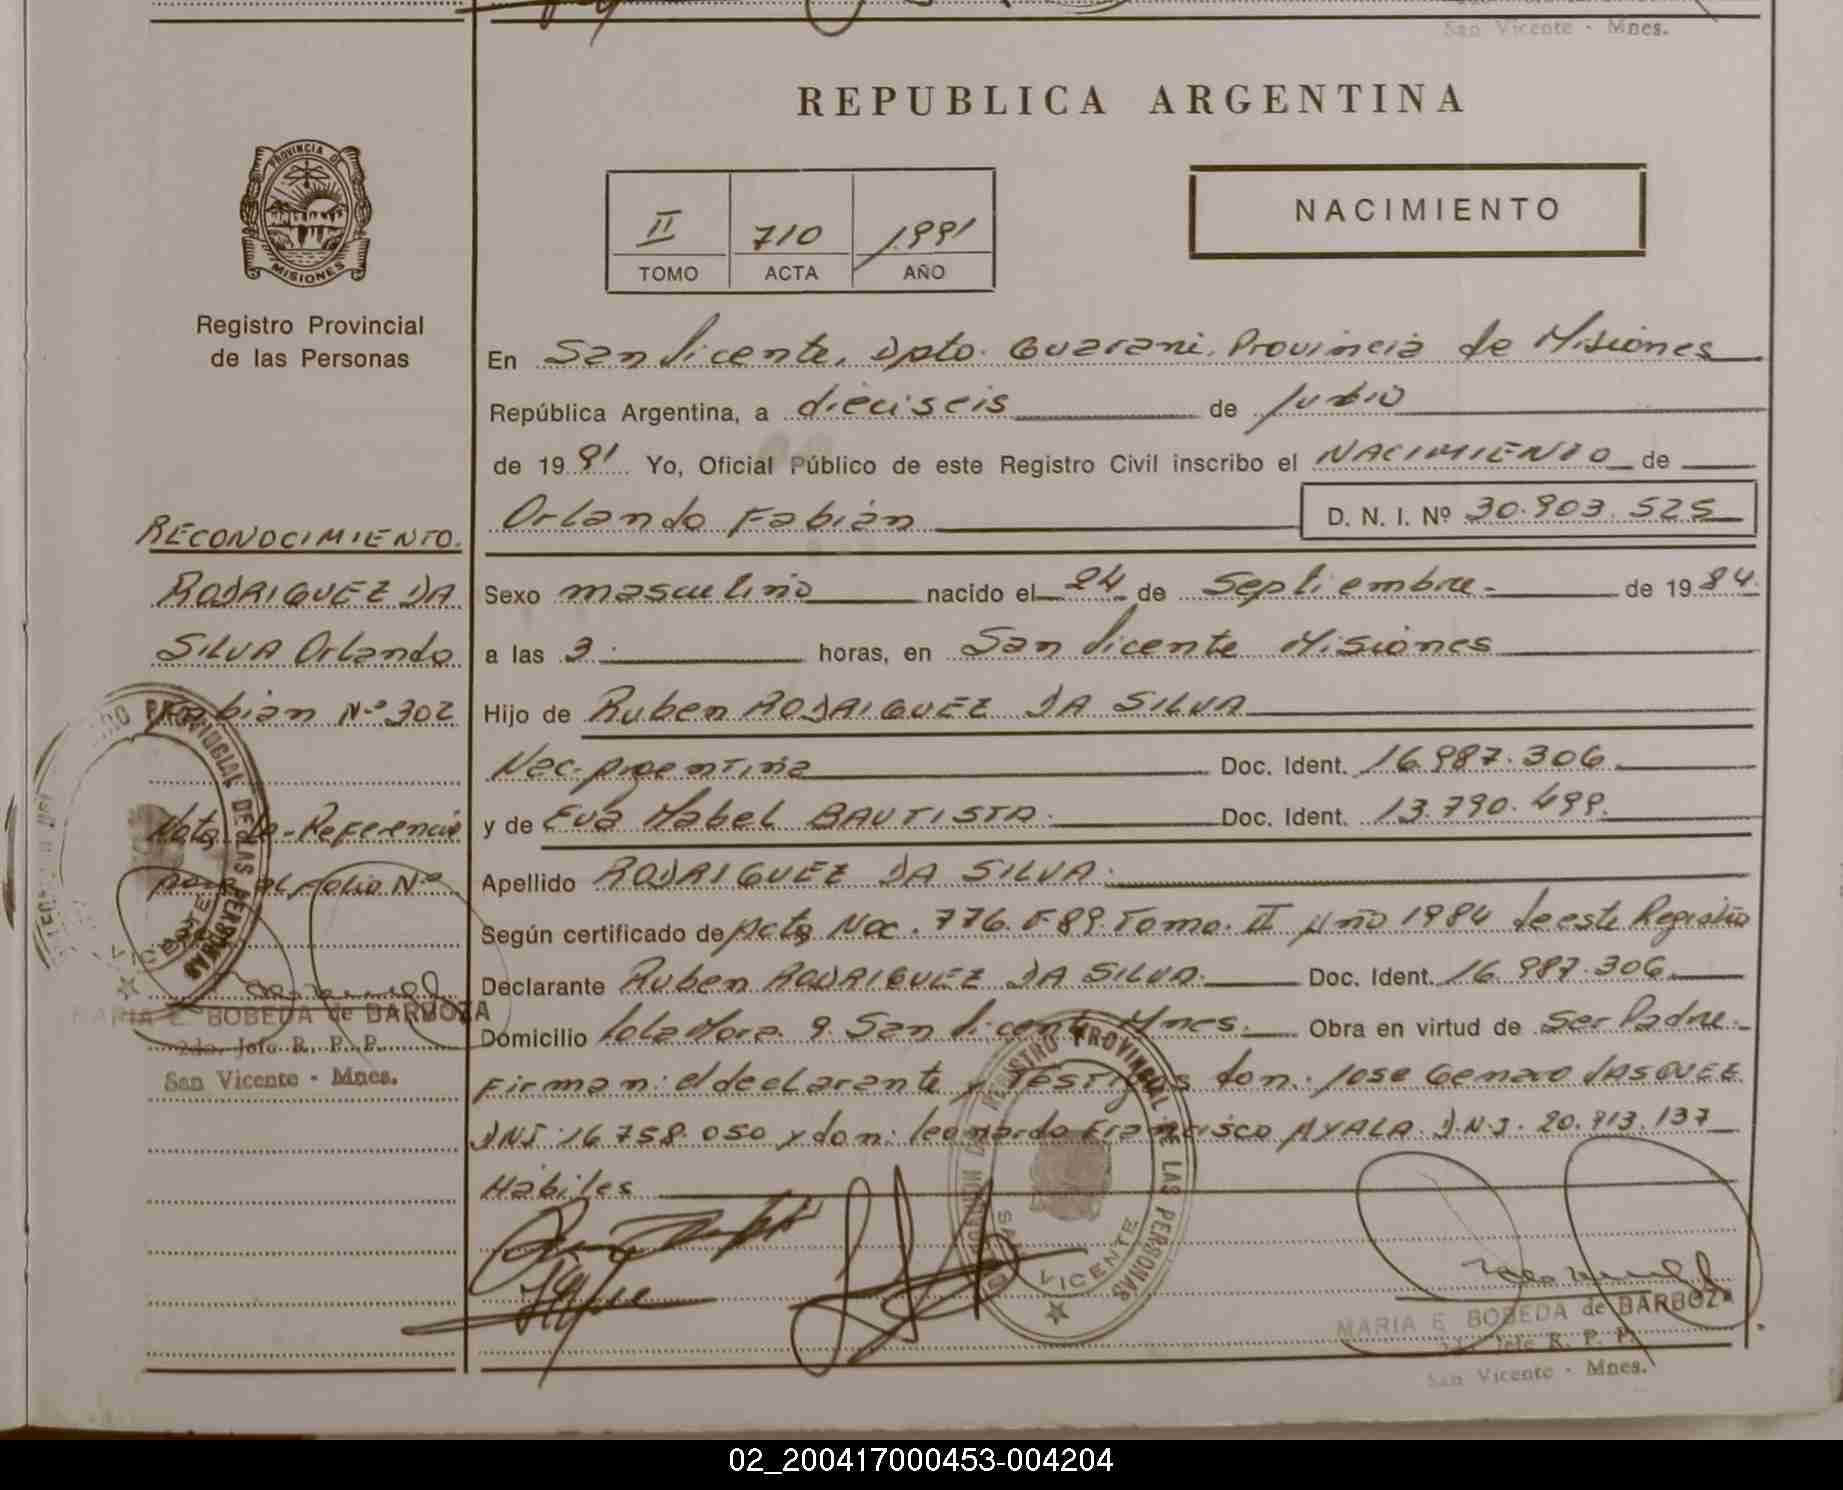 San Vicente - Mnes.
REPUBLICA ARGENTINA
PROVINCIA DE
MISIONES
II 710 1991
TOMO ACTA AÑO
NACIMIENTO
Registro Provincial
de las Personas
En San Vicente, Dpto. Guarani, Provincia de Misiones
República Argentina, a dieciseis de
de 1991 Yo, Oficial Público de este Registro Civil inscribo el NACIMIENTO de
Orlando Fabián D. N. I. Nº 30.903.525
Sexo masculino nacido el 24 de Septiembre de 1984.
a las 3 horas, en San Vicente Misiones
Hijo de Ruben RODRIGUEZ DA SILVA
Nac. Argentina Doc. Ident. 16.987.306
y de Eva Mabel BAUTISTA Doc. Ident. 13.790.499
Apellido RODRIGUEZ DA SILVA
Según certificado de Acta Nac. 776. F 89. Tomo. II Año 1984 de este Registro
Declarante Ruben RODRIGUEZ DA SILVA Doc. Ident. 16.987.306
Domicilio Lola Mora 9. San Vicente Mnes. Obra en virtud de Ser Padre
Firman: el declarante y Testigos don. Jose Genaro VASQUEZ
DNI 16.758.050 y don: Leonardo Francisco AYALA D.N.I. 20.913.137
Hábiles
RECONOCIMIENTO.
RODRIGUEZ DA
SILVA Orlando
Fabian Nº 302
Nota de Referencia
pasa al folio Nº
MARIA E. BOBEDA de BARBOZA
2do. Jefe R. P. P.
San Vicente - Mnes.
REGISTRO PROVINCIAL DE LAS PERSONAS
SAN VICENTE
MARIA E. BOBEDA de BARBOZA
2do. Jefe R. P. P.
San Vicente - Mnes.
02_200417000453-004204